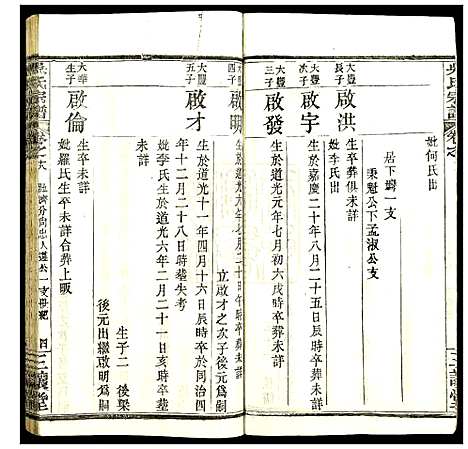 妣何氏出
居下壩一支
秉魁公下孟淑公支
大豐長子 啟洪
生卒葬俱未詳
妣李氏出
啟宇
生於嘉慶二十年八月二十五日辰時卒葬未詳
大豐三子 啟發
生於道光元年七月初六戌時卒葬未詳
四子 啟明
立啟才之次子後元為嗣
大豐五子 啟才
生於道光十一年四月十六日辰時卒於同治四
年十二月二十八日時塟失考
妣李氏生於道光六年二月二十一日亥時卒葬
未詳
生子二 後梁
後元出繼啟明為嗣
大華生子 啟倫
生卒未詳
妣羅氏生卒未詳合葬上畈
吳氏宗譜
四
三讓堂